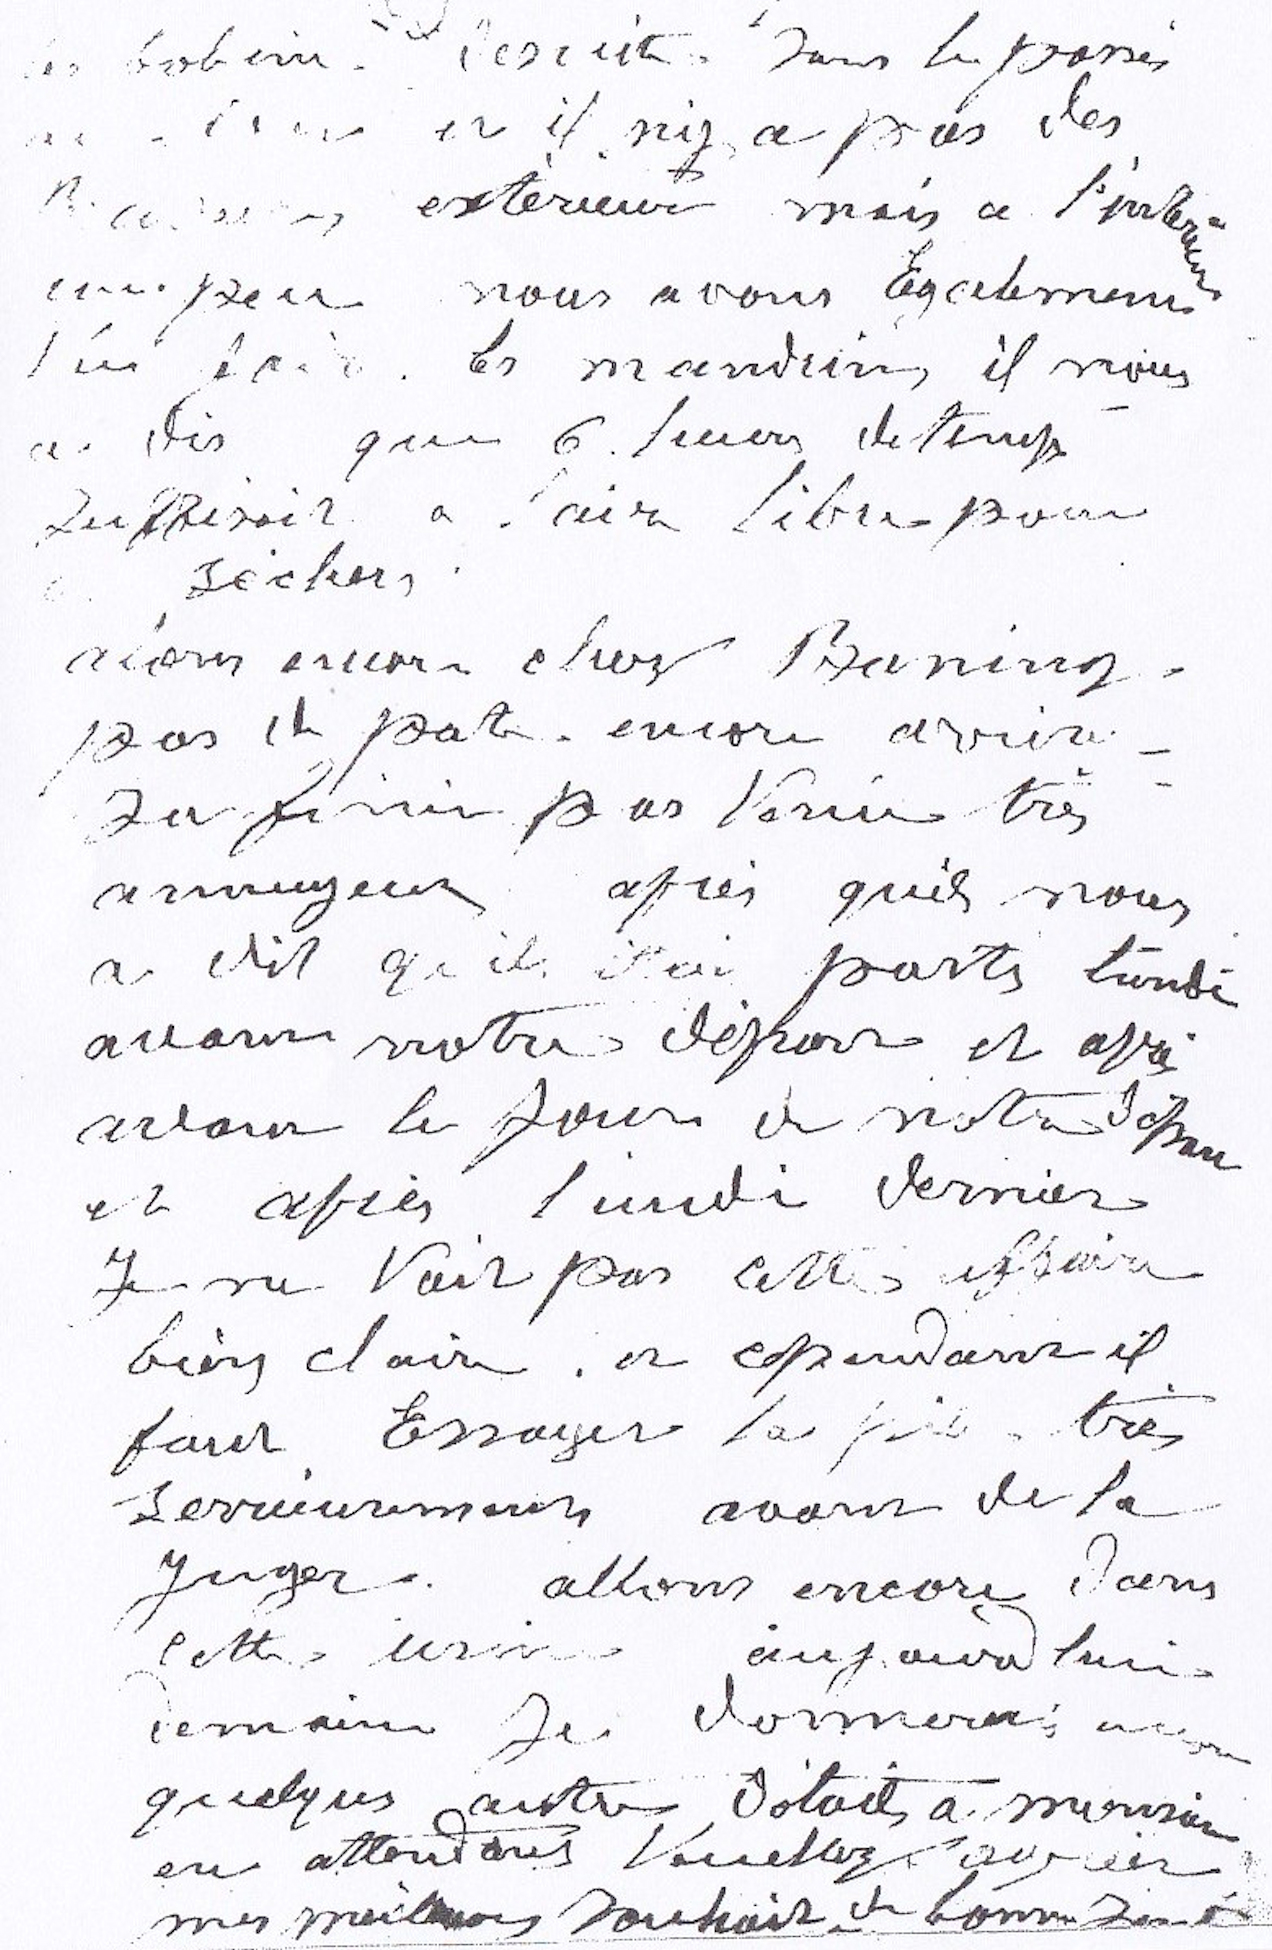 les bobine desuite dans le
et il niy a pas des
extèrieur mais a l'intérieur
un peu nous avons Egalement
les mandrins il nous
a dis que 6 heures de temps
a l'air libre pour
séchers
encore chez Baning
pas de pate encore
pas Venir très
annuyeux après quils nous
a dit qu'ils parts lundi
avant notre départ et après
avant le jour de notre départ
et après lundi dernier
Je ne Voit pas cette affaire
bièn claire. et cependant il
faut Essayer la pile très
serrieurement avant de la
Juger. allons encore dans
cette usine aujourd hui
demain Je donnerais encore
quelques autre détails a monsieur
en attendant Veuellez agrèer
mes meilleurs Souhait de bonne Santé